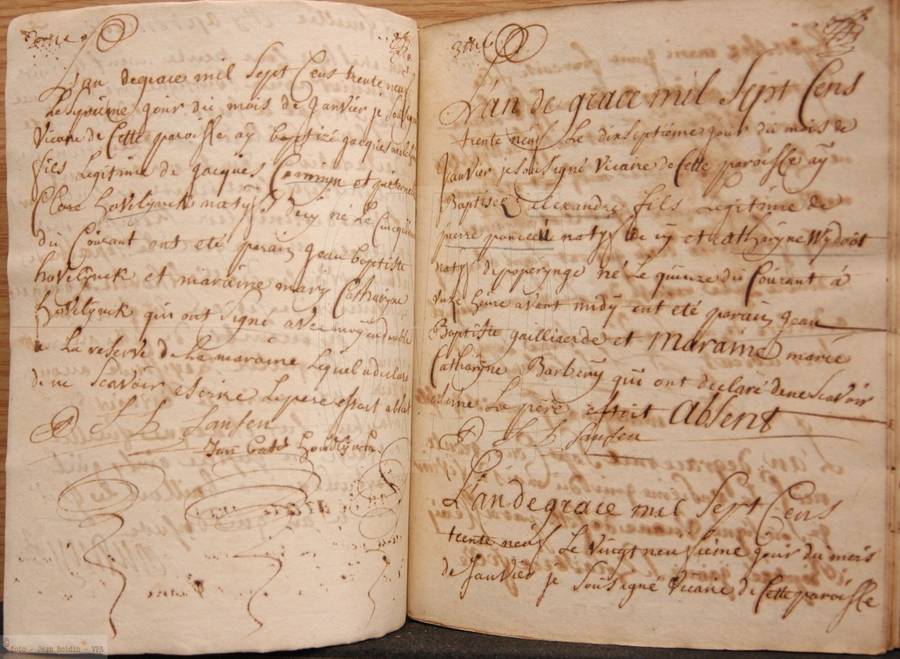 L'an de grace mil Sept Cens trente neuf
Le jour du mois de Janvier je
Vicaire de Cette paroisse ay baptizé jacques
fils Legitime de jacques et
Clare hovelynck natyf D'icy né Le Cinq
du Courant ont eté parain jean baptiste
hovelynck et maraine mary Catharyne
hovelynck qui ont Signé avec moy
a La reserve de La maraine Lequel a declaré
de ne Scavoir ecrire Le pere estoit absent
Jansen
L'an de grace mil Sept Cens
trente neuf Le dixseptieme jour du mois de
Janvier je sousigné Vicaire de Cette paroisse ay
Baptisé alexandre fils Legitime de
pierre natyf de et Catharyne Wydoot
natyf de poperynge né Le quinze du Courant á
heure avant midy ont eté parain jean
Baptiste gailliaerde et Maraine marie
Catharyne Barbery qui ont declaré de ne Scavoir
Le pere estoit Absent
Jansen
L'an de grace mil Sept Cens
trente neuf Le Vingt neufieme jour du mois
de Janvier je Sousigné Vicaire de Cette paroisse
foto - Jean Boidin - VVA